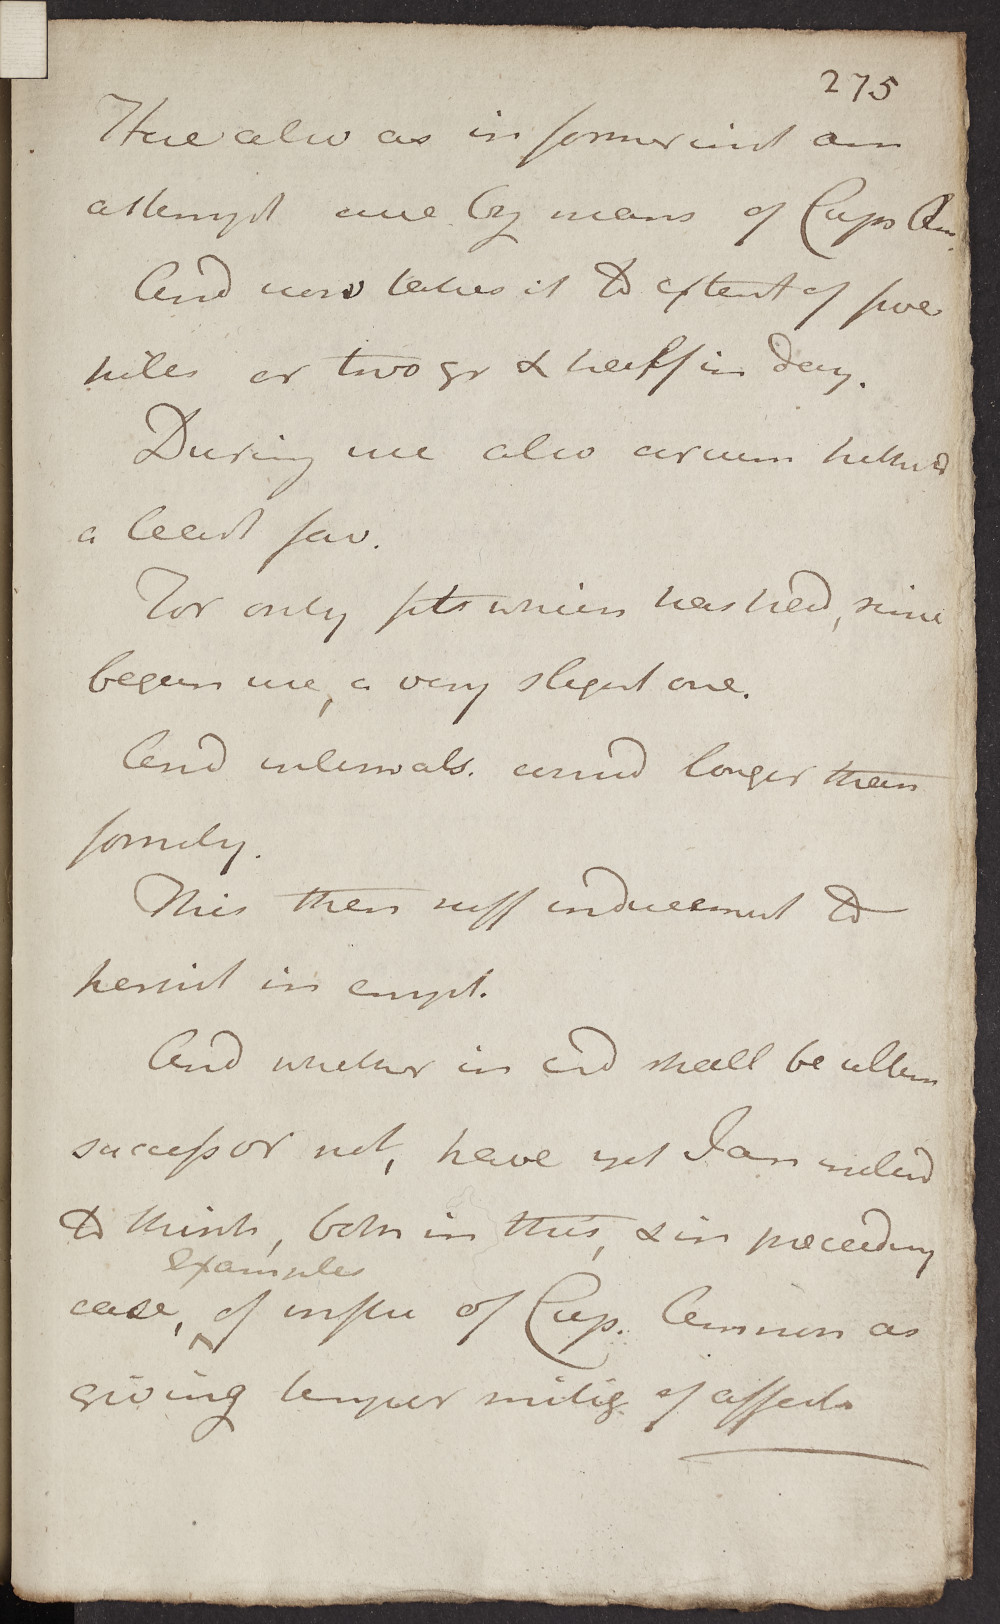 275
Here also as in former inst am
attempt cure by means of Cupr Am.
And now takes it to extent of five
pills or two gr & half in day.
During use also circum hitherto
a least fav.
For only fits which has had, since
began use, a very slight one.
And intervals. considd longer than
formely.
This then suff inducement to
persist in empt.
And whether in end shall be ultim
success or not, have yet I am inclind
to think, both in this, & in preceeding
examples
case, of influ of Cup. Ammon as
giving temper mitig. of affects